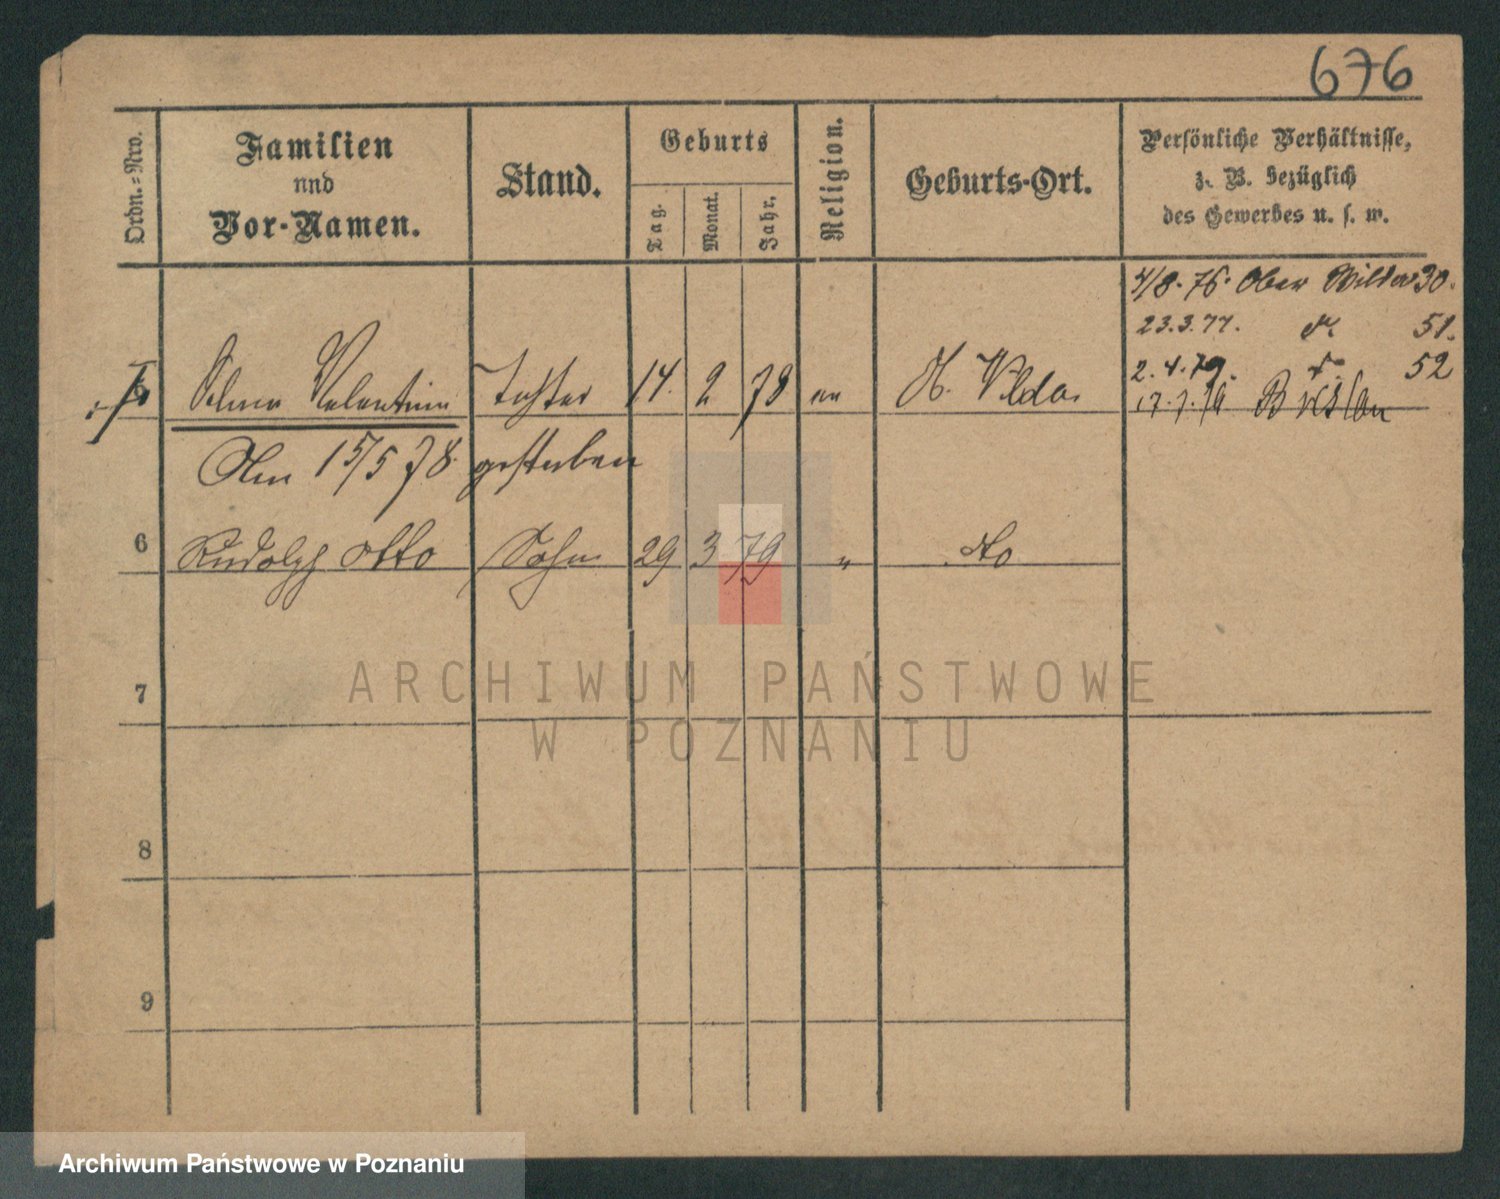 676
Ordn.=Nro.
Familien
und
Vor-Namen.
Stand.
Geburts
Tag.
Monat.
Jahr.
Religion.
Geburts-Ort.
Persönliche Verhältnisse,
z. B. bezüglich
des Gewerbes u. s. w.
4/8. 76. Ober Wilda 30.
23.3.77. do 51.
2. 4. 79. do 52
Breslau
Selma Valentine Tochter 14. 2 78 ev O. Wilda.
Am 15/5 78 gestorben
6 Rudolph Otto Sohn 29 3 79 " do
7
8
9
ARCHIWUM PAŃSTWOWE
W POZNANIU
Archiwum Państwowe w Poznaniu